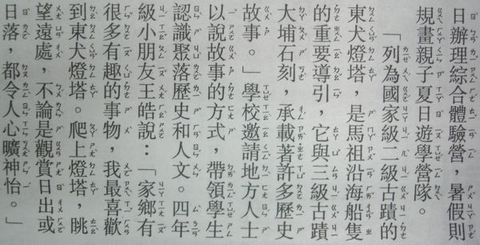 日辦理綜合體驗營，暑假則
規畫親子夏日遊學營隊。
「列為國家級二級古蹟的
東犬燈塔，是馬祖沿海船隻
的重要導引，它與三級古蹟
大埔石刻，承載著許多歷史
故事。」學校邀請地方人士
以說故事的方式，帶領學生
認識聚落歷史和人文。四年
級小朋友王皓說：「家鄉有
很多有趣的事物，我最喜歡
到東犬燈塔。爬上燈塔，眺
望遠處，不論是觀賞日出或
日落，都令人心曠神怡。」